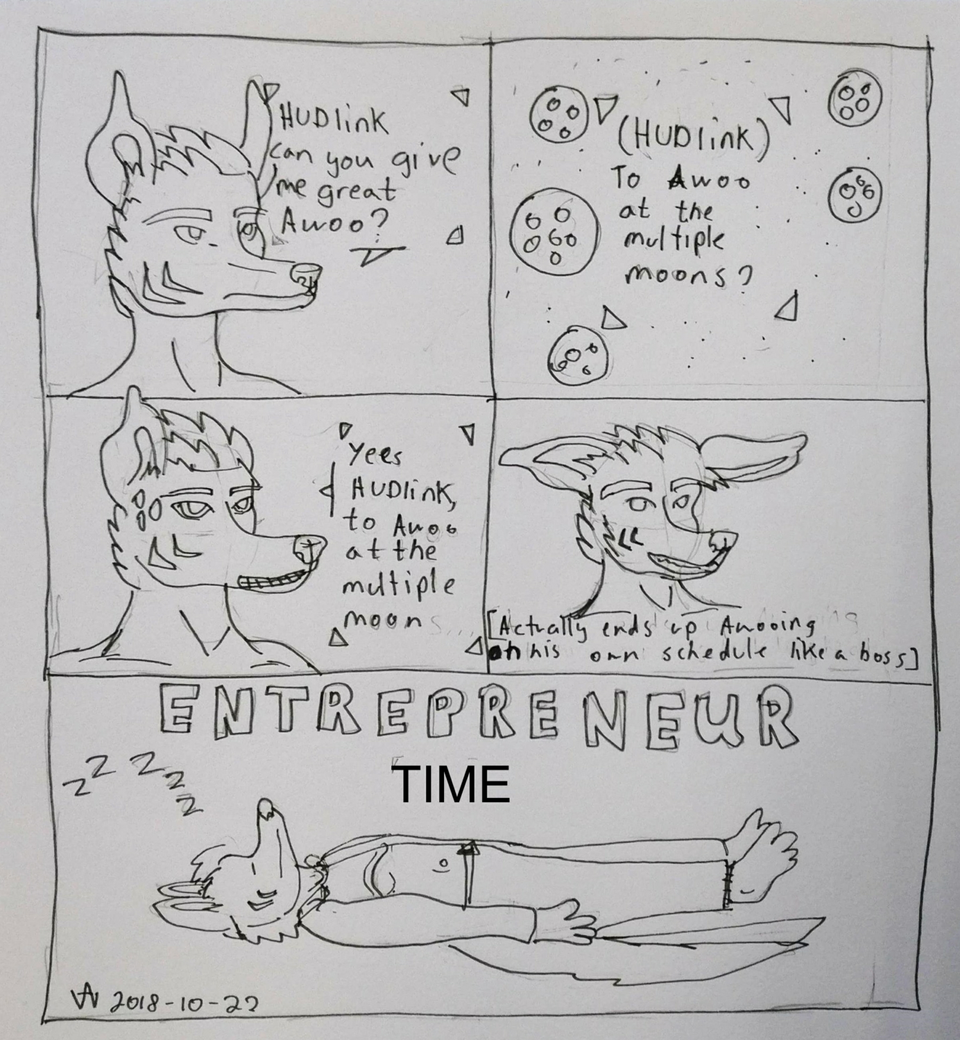 HUDlink
can you give
me great
Awoo?
(HUDlink)
To Awoo
at the
multiple
moons?
Yees
HUDlink,
to Awoo
at the
multiple
moons...
[Actually ends up Awooing
on his own schedule like a boss]
ENTREPRENEUR
TIME
z z z z z